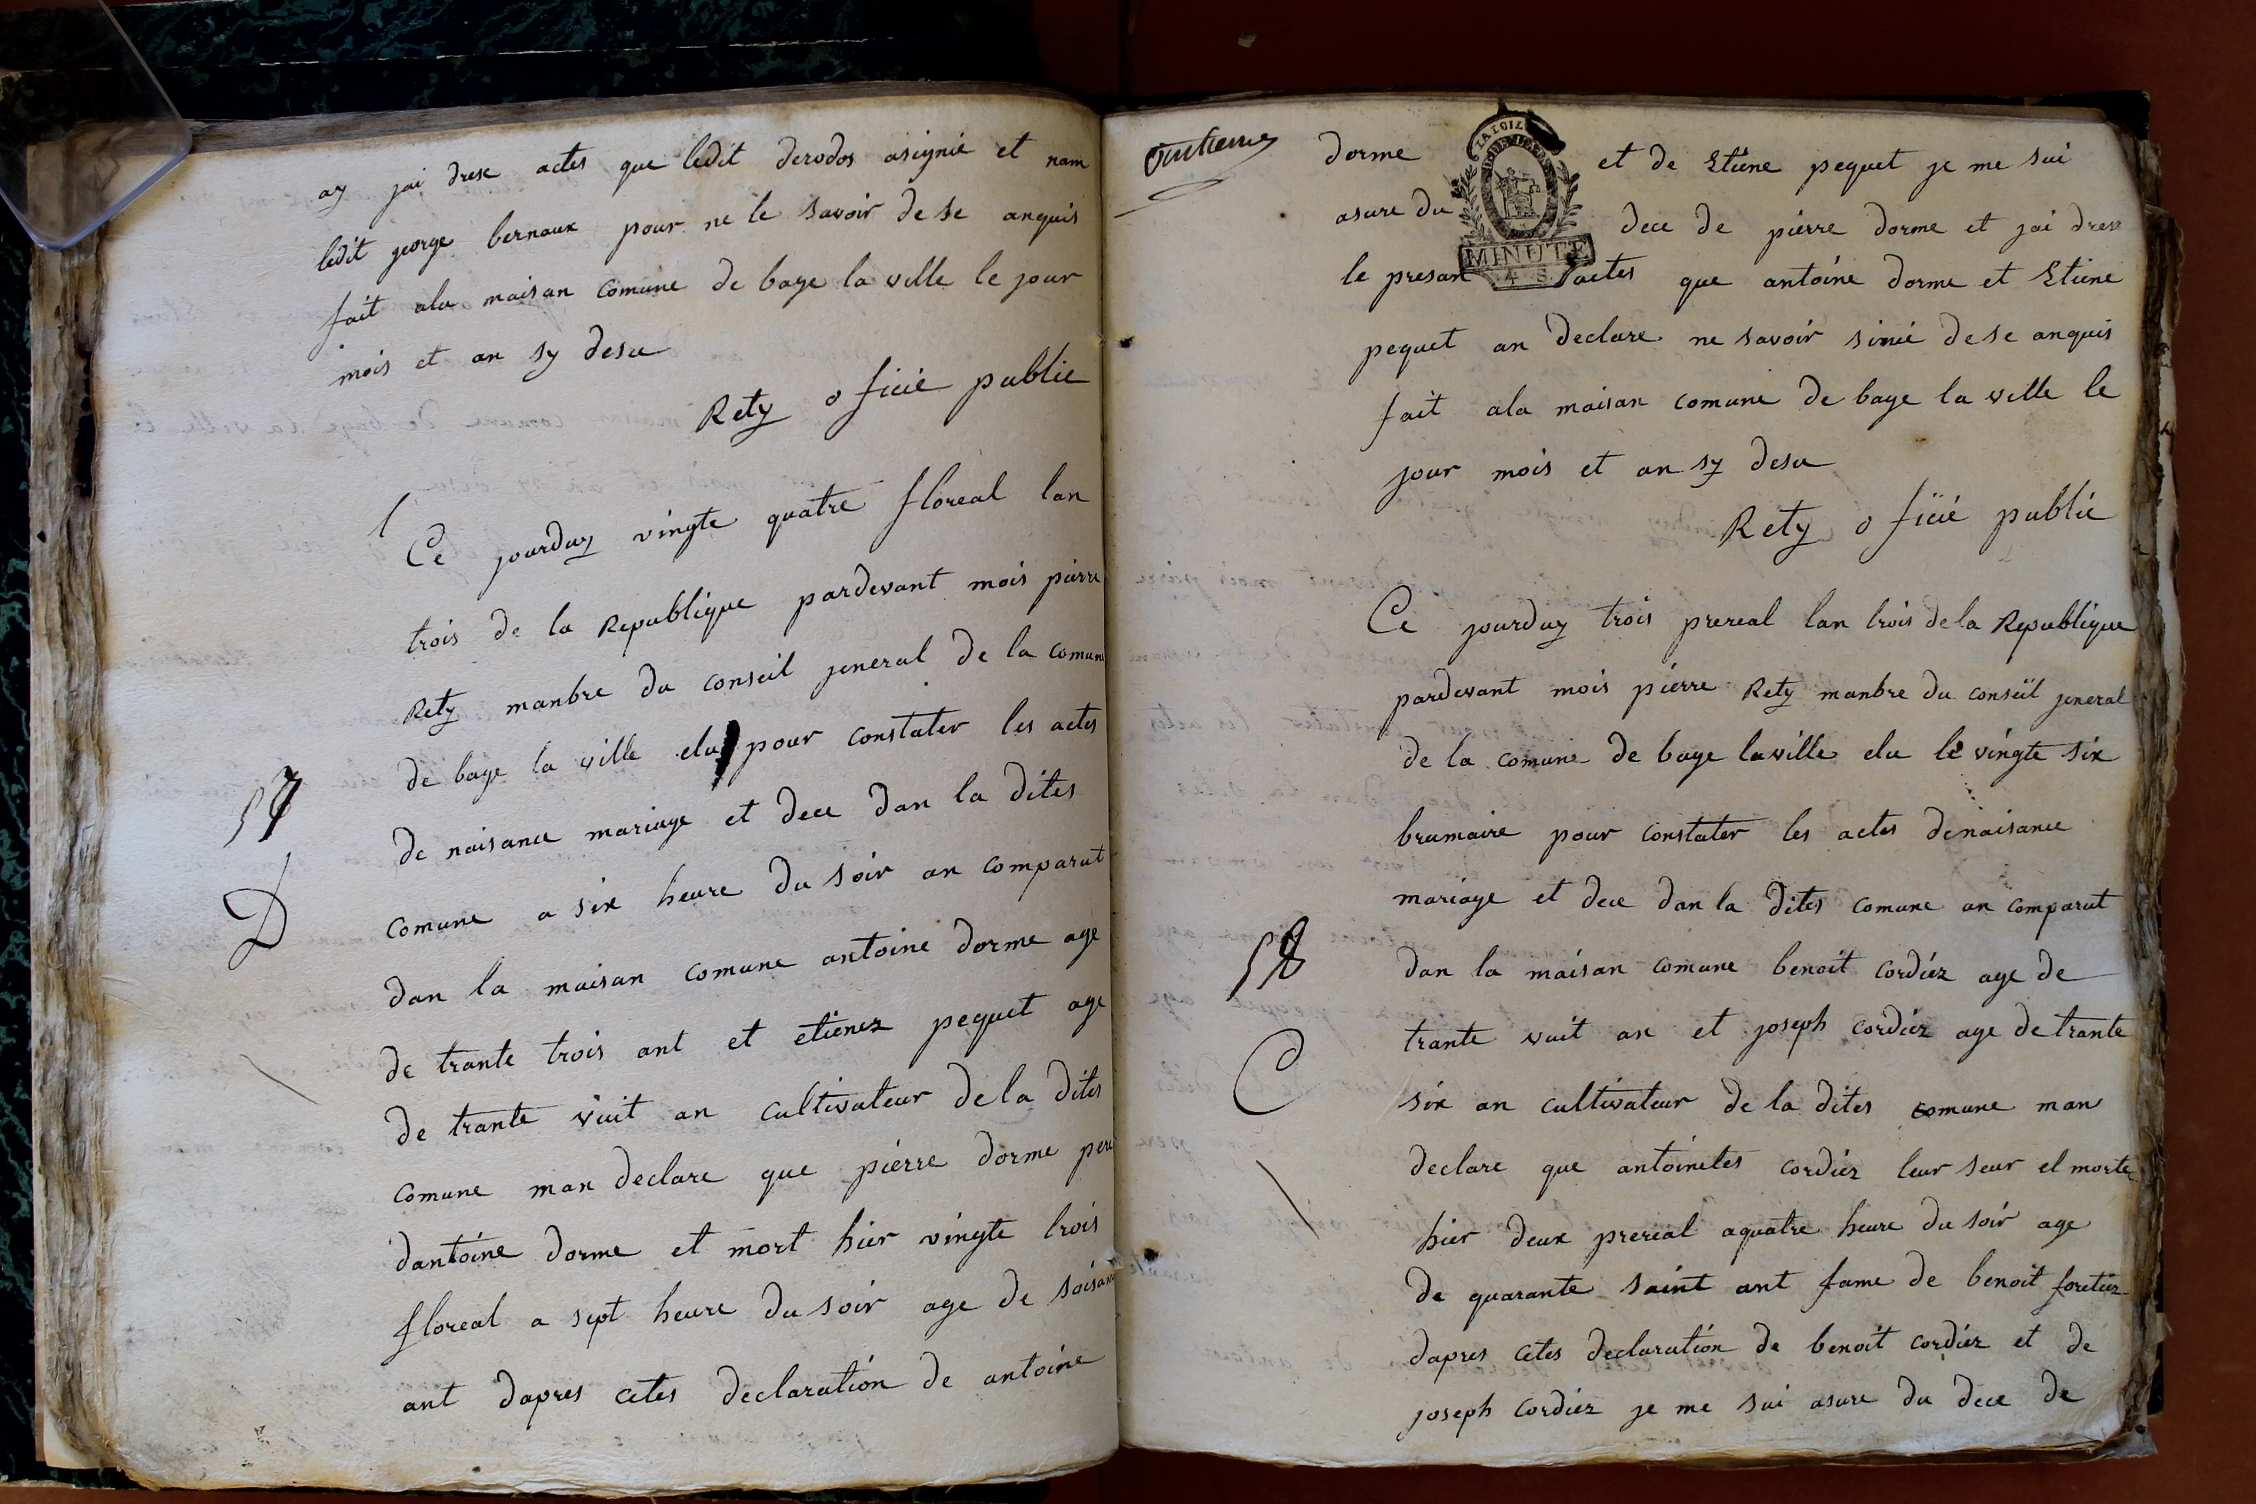 ay jai drese actes que ledit derodos asignié et nam
ledit george bernoux pour ne le savoir de se anquis
fait ala maisan comune de bage la ville le jour
mois et an sy desu
Rety oficié publié
Ce jourduy vingte quatre floreal lan
trois de la Republique pardevant mois pierre
Rety manbre du conseil jeneral de la comune
de bage la ville elu pour constater les actes
57
de naisance mariage et dece dan la dites
D
comune a six heure du soir an comparut
dan la maisan comune antoine dorme age
de trante trois ant et etienez pequet age
de trante vuit an cultivateur de la dites
comune man declare que pierre dorme pere
dantoine dorme et mort hier vingte trois
floreal a sept heure du soir age de soisan
ant dapres cetes declaration de antoine
dorme et de Etiene pequet je me sui
LA LOI
asure du dece de pierre dorme et jai drese
MINUTE
4 S.
le presan actes que antoine dorme et Etiene
pequet an declare ne savoir sinié de se anquis
fait ala maisan comune de bage la ville le
jour mois et an sy desu
Rety oficié publié
Ce jourduy trois prereal lan trois de la Republique
pardevant mois pierre Rety manbre du conseil jeneral
de la comune de bage laville elu le vingte six
brumaire pour constater les actes de naisance
mariage et dece dan la dites comune an comparut
58
dan la maisan comune benoit cordiez age de
trante vuit an et joseph cordiez age de trante
C
six an cultivateur de la dites comune man
declare que antoinetes cordiez leur seur el morte
hier deux prereal aquatre heure du soir age
de quarante saint ant fame de benoit foretiez
dapres cetes declaration de benoit cordiez et de
joseph cordiez je me sui asure du dece de